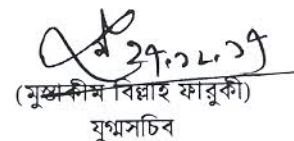 ২৭.১২.১৭
(মুস্তাকীম বিল্লাহ ফারুকী)
যুগ্মসচিব